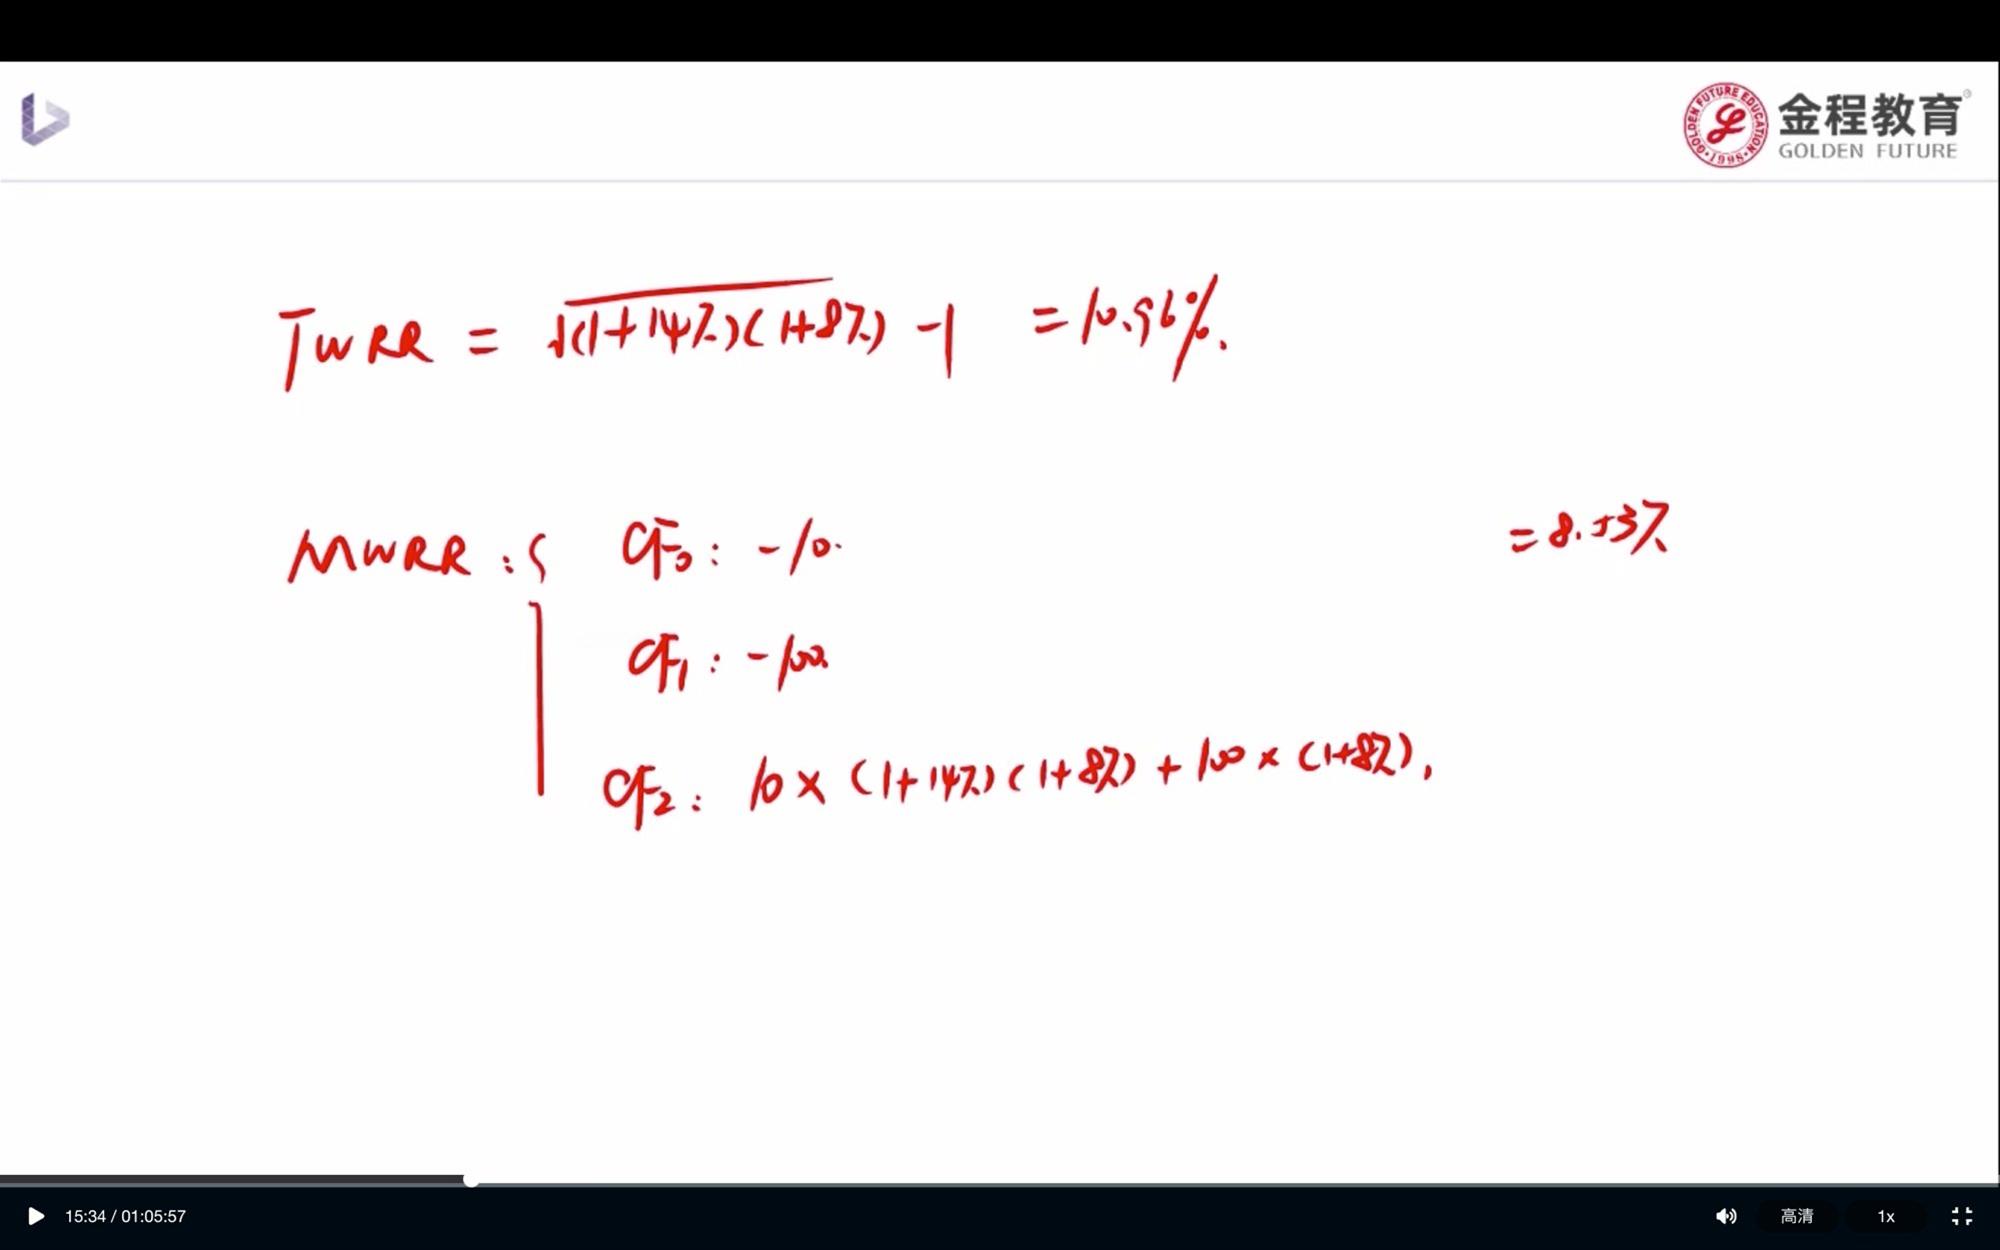 GOLDEN FUTURE EDUCATION
·1998·
金程教育®
GOLDEN FUTURE
TWRR = √(1+14%)(1+8%) -1 = 10.96%.
MWRR : { CF₀ : -10. = 8.53%
CF₁ : -100.
CF₂ : 10 × (1+14%)(1+8%) + 100 × (1+8%),
15:34 / 01:05:57
高清
1x